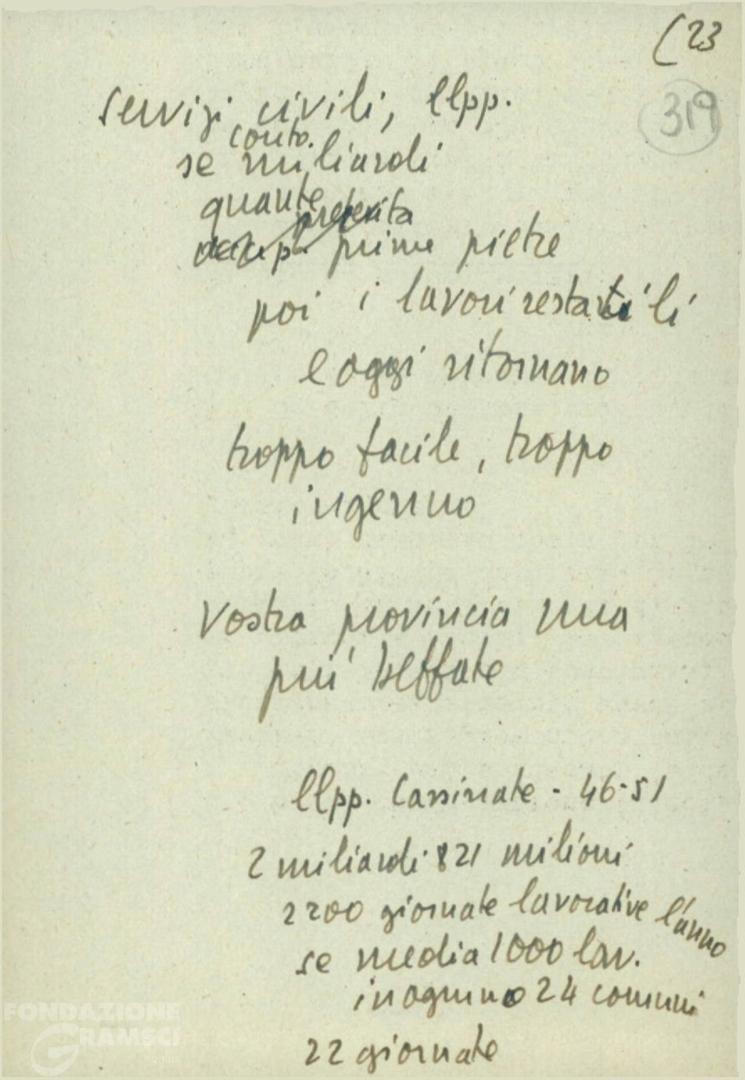 (23
319
servizi civili, llpp.
conto.
se miliardi
quante
prime pietre
poi i lavori restati lì
e oggi ritornano
troppo facile, troppo
ingenuo
Vostra provincia una
più beffate
llpp. Cassinate - 46-51
2 miliardi 821 milioni
2200 giornate lavorative l'anno
se media 1000 lav.
in ognuno 24 comuni
22 giornate
FONDAZIONE
GRAMSCI